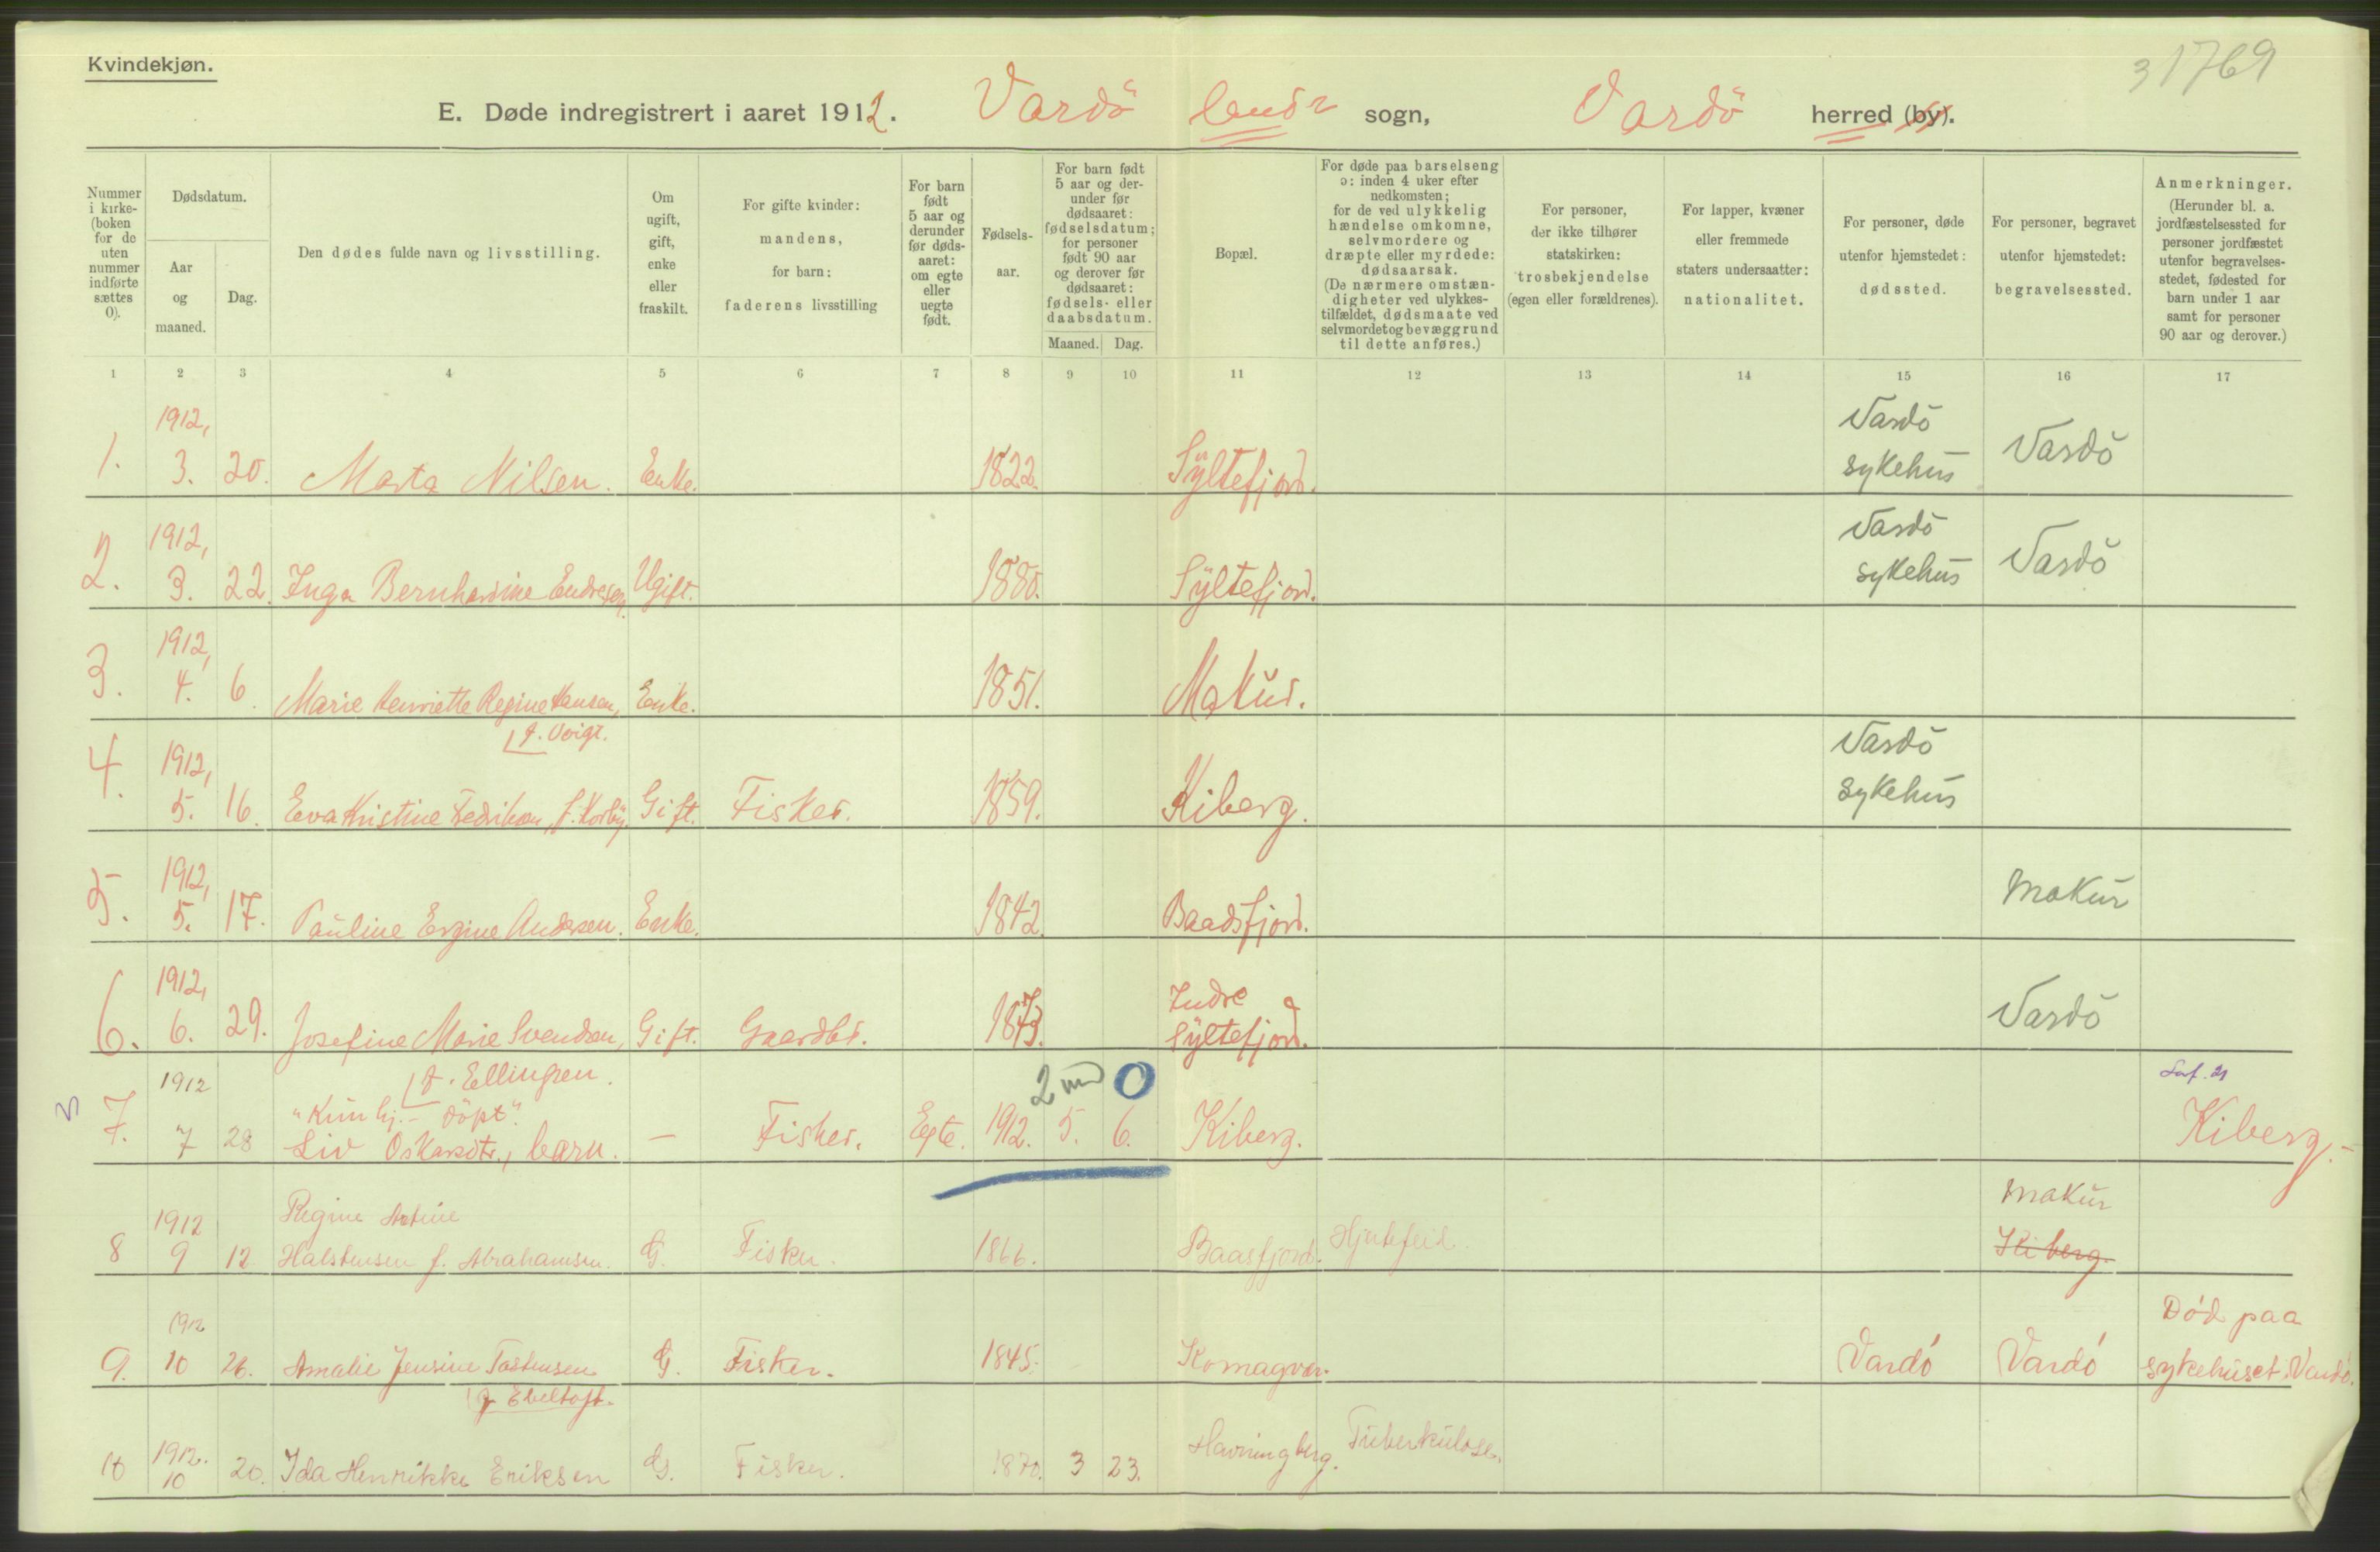 Kvindekjøn.
31769
E. Døde indregistrert i aaret 1912. Vardö sogn, Vardö herred (by).
Nummer i kirke-(boken for de uten nummer indførte sættes 0).
Dødsdatum.
Aar og maaned.
Dag.
Den dødes fulde navn og livsstilling.
Om ugift, gift, enke eller fraskilt.
For gifte kvinder: mandens, for barn: faderens livsstilling
For barn født 5 aar og derunder før døds-aaret: om egte eller uegte født.
Fødsels-aar.
For barn født 5 aar og der-under før dødsaaret: fødselsdatum; for personer født 90 aar og derover før dødsaaret: fødsels- eller daabsdatum.
Maaned.
Dag.
Bopæl.
For døde paa barselseng ɔ: inden 4 uker efter nedkomsten; for de ved ulykkelig hændelse omkomne, selvmordere og dræpte eller myrdede: dødsaarsak. (De nærmere omstæn-digheter ved ulykkes-tilfældet, dødsmaate ved selvmord et og bevæggrund til dette anføres.)
For personer, der ikke tilhører statskirken: trosbekjendelse (egen eller forældrenes).
For lapper, kvæner eller fremmede staters undersaatter: nationalitet.
For personer, døde utenfor hjemstedet: dødssted.
For personer, begravet utenfor hjemstedet: begravelsessted.
Anmerkninger. (Herunder bl. a. jordfæstelsessted for personer jordfæstet utenfor begravelses-stedet, fødested for barn under 1 aar samt for personer 90 aar og derover.)
1 2 3 4 5 6 7 8 9 10 11 12 13 14 15 16 17
1. 1912, 3. 20. Marta Nilsen. Enke. 1822. Syltefjord. Vardö sykehus Vardö
2. 1912, 3. 22. Inga Bernhardine Endresen. Ugift. 1880. Syltefjord. Vardö sykehus Vardö
3. 1912, 4. 6. Marie Henriette Regine Hansen, Enke. 1851. Makur.
f. Voigt.
4. 1912, 5. 16. Eva Kristine Fredriksen, f. Korbÿ. Gift. Fisker. 1859. Kiberg. Vardö sykehus
5. 1912, 5. 17. Pauline Ergine Andersen. Enke. 1842. Baadsfjord. Makur
6. 1912, 6. 29. Josefine Marie Svendsen, Gift. Gaardbr. 1873. Indre Syltefjord. Vardö
f. Ellingsen.
7. 1912 7 28 "Kun hj.- döpt."
Liv Oskarsdtr., barn. — Fisker. Egte. 1912. 5. 6. 2 md 0 Kiberg. Kiberg.-
8 1912 9 12 Regine
Halstensen f. Abrahamsen. G. Fisker. 1866. Baasfjord. Hjertefeil. Makur Kiberg.
9. 1912 10 26. Amalie Jensine Tostensen G. Fisker. 1845. Komagvær. Vardö Vardö Död paa sykehuset i Vardö.
f. Ebeltoft.
10 1912. 10 20. Ida Henrikke Eriksen G. Fisker. 1870. 3 23. Havningberg. Tuberkulose.